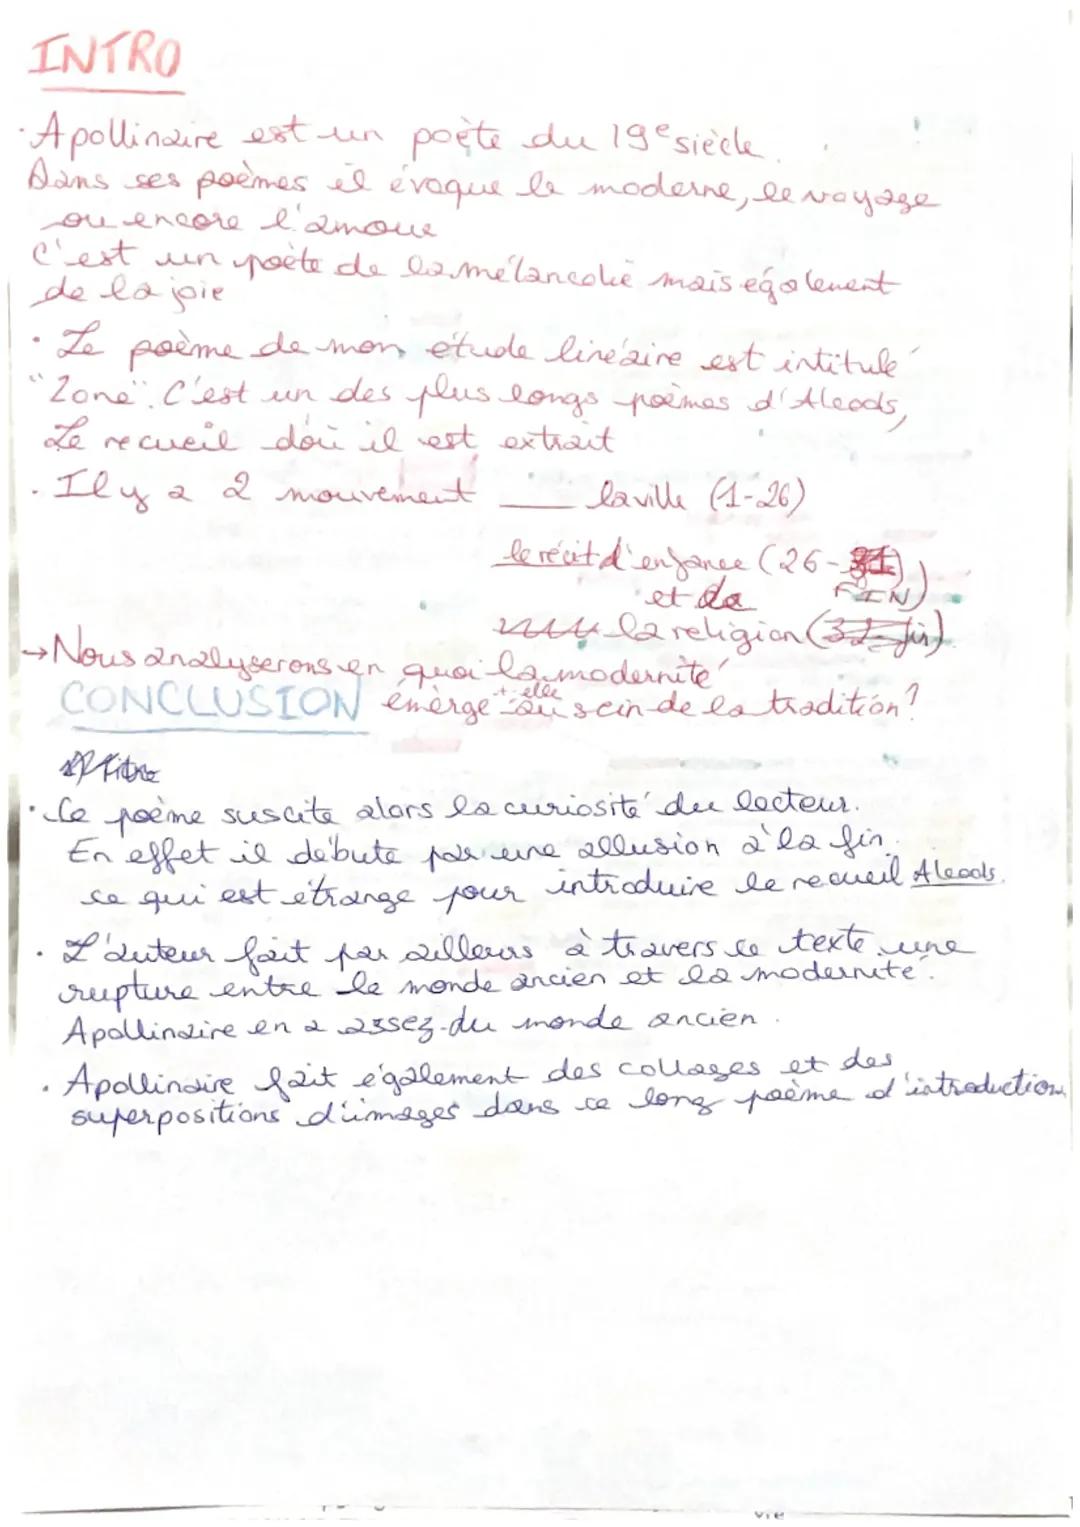 INTRO
· Apollinaire est un poète du 19e siècle.
Dans ses poèmes il évoque le moderne, le voyage
ou encore l'amour
C'est un poète de la mélancolie mais également
de la joie
· Le poème de mon étude linéaire est intitulé
"Zone". C'est un des plus longs poèmes d'Alcools,
Le recueil doù il est extrait
· Il y a 2 mouvement la ville (1-26)
le récit d'enfance (26-31)
et de FIN)
la religion (32-fin)
→ Nous analyserons en quoi la modernité
émerge-t-elle au sein de la tradition?
CONCLUSION
titre
· Ce poème suscite alors la curiosité du lecteur.
En effet il débute par une allusion à la fin.
ce qui est étrange pour introduire le recueil Alcools.
· L'auteur fait par ailleurs à travers ce texte une
rupture entre le monde ancien et la modernité.
Apollinaire en a assez du monde ancien.
· Apollinaire fait également des collages et des
superpositions d'images dans ce long poème d'introduction
vie